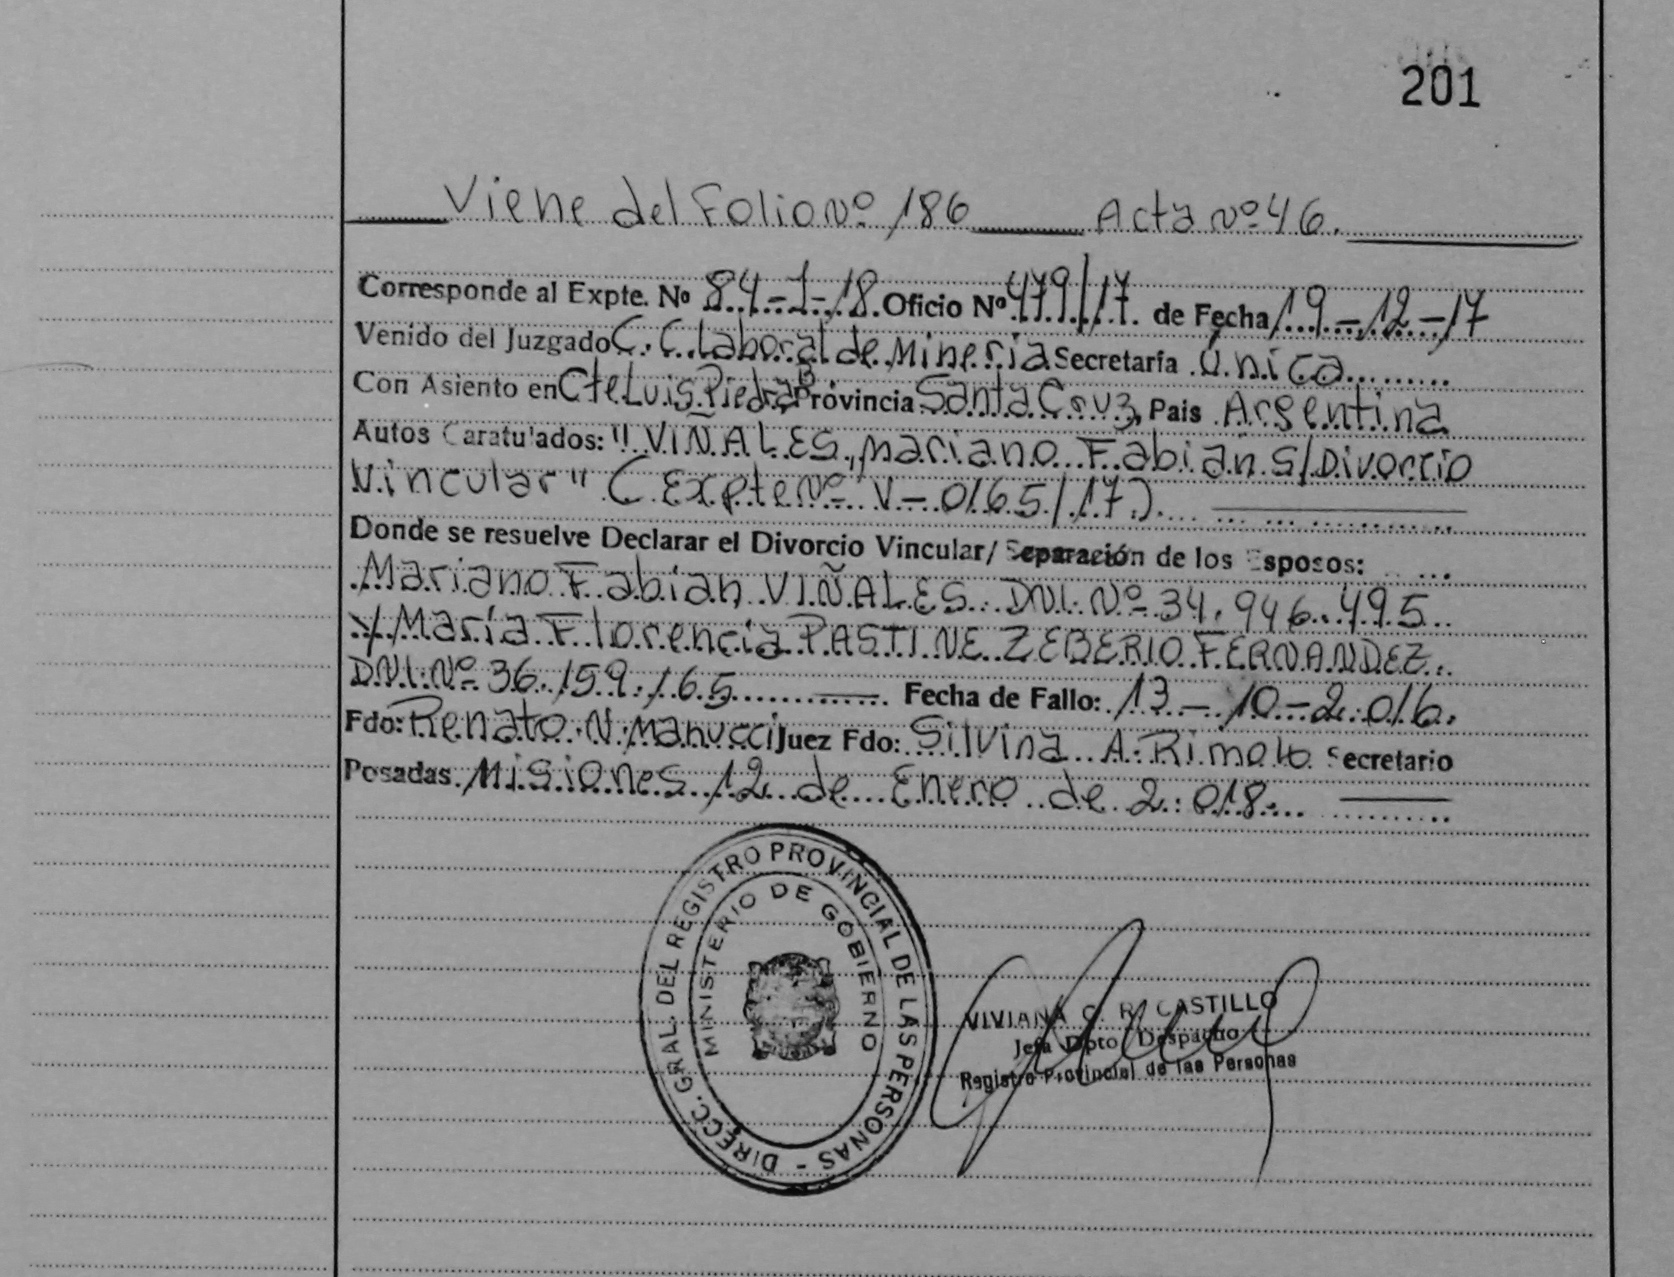 201
Viene del Folio Nº 186 Acta Nº 46.
Corresponde al Expte. Nº 84-1-18 Oficio Nº 479/17. de Fecha 19-12-17
Venido del Juzgado C.C. Laboral de Minería Secretaría Única
Con Asiento en Cte Luis Piedra B Provincia Santa Cruz, Pais Argentina
Autos Caratulados: "VIÑALES, Mariano Fabian S/Divorcio
Vincular" (Expte Nº V-0165/17)
Donde se resuelve Declarar el Divorcio Vincular/ Separación de los Esposos:
Mariano Fabian VIÑALES DNI. Nº 34.946.495
y María Florencia PASTINE ZEBERIO FERNANDEZ.
D.N.I. Nº 36.159.165 Fecha de Fallo: 13-10-2.016.
Fdo: Renato N. Manucci Juez Fdo: Silvina A. Rimolo Secretario
Posadas. Misiones 12 de Enero de 2.018.
DIRECC. GRAL. DEL REGISTRO PROVINCIAL DE LAS PERSONAS -
MINISTERIO DE GOBIERNO
VIVIANA C. R. CASTILLO
Jefa Dpto Despacho
Registro Provincial de las Personas